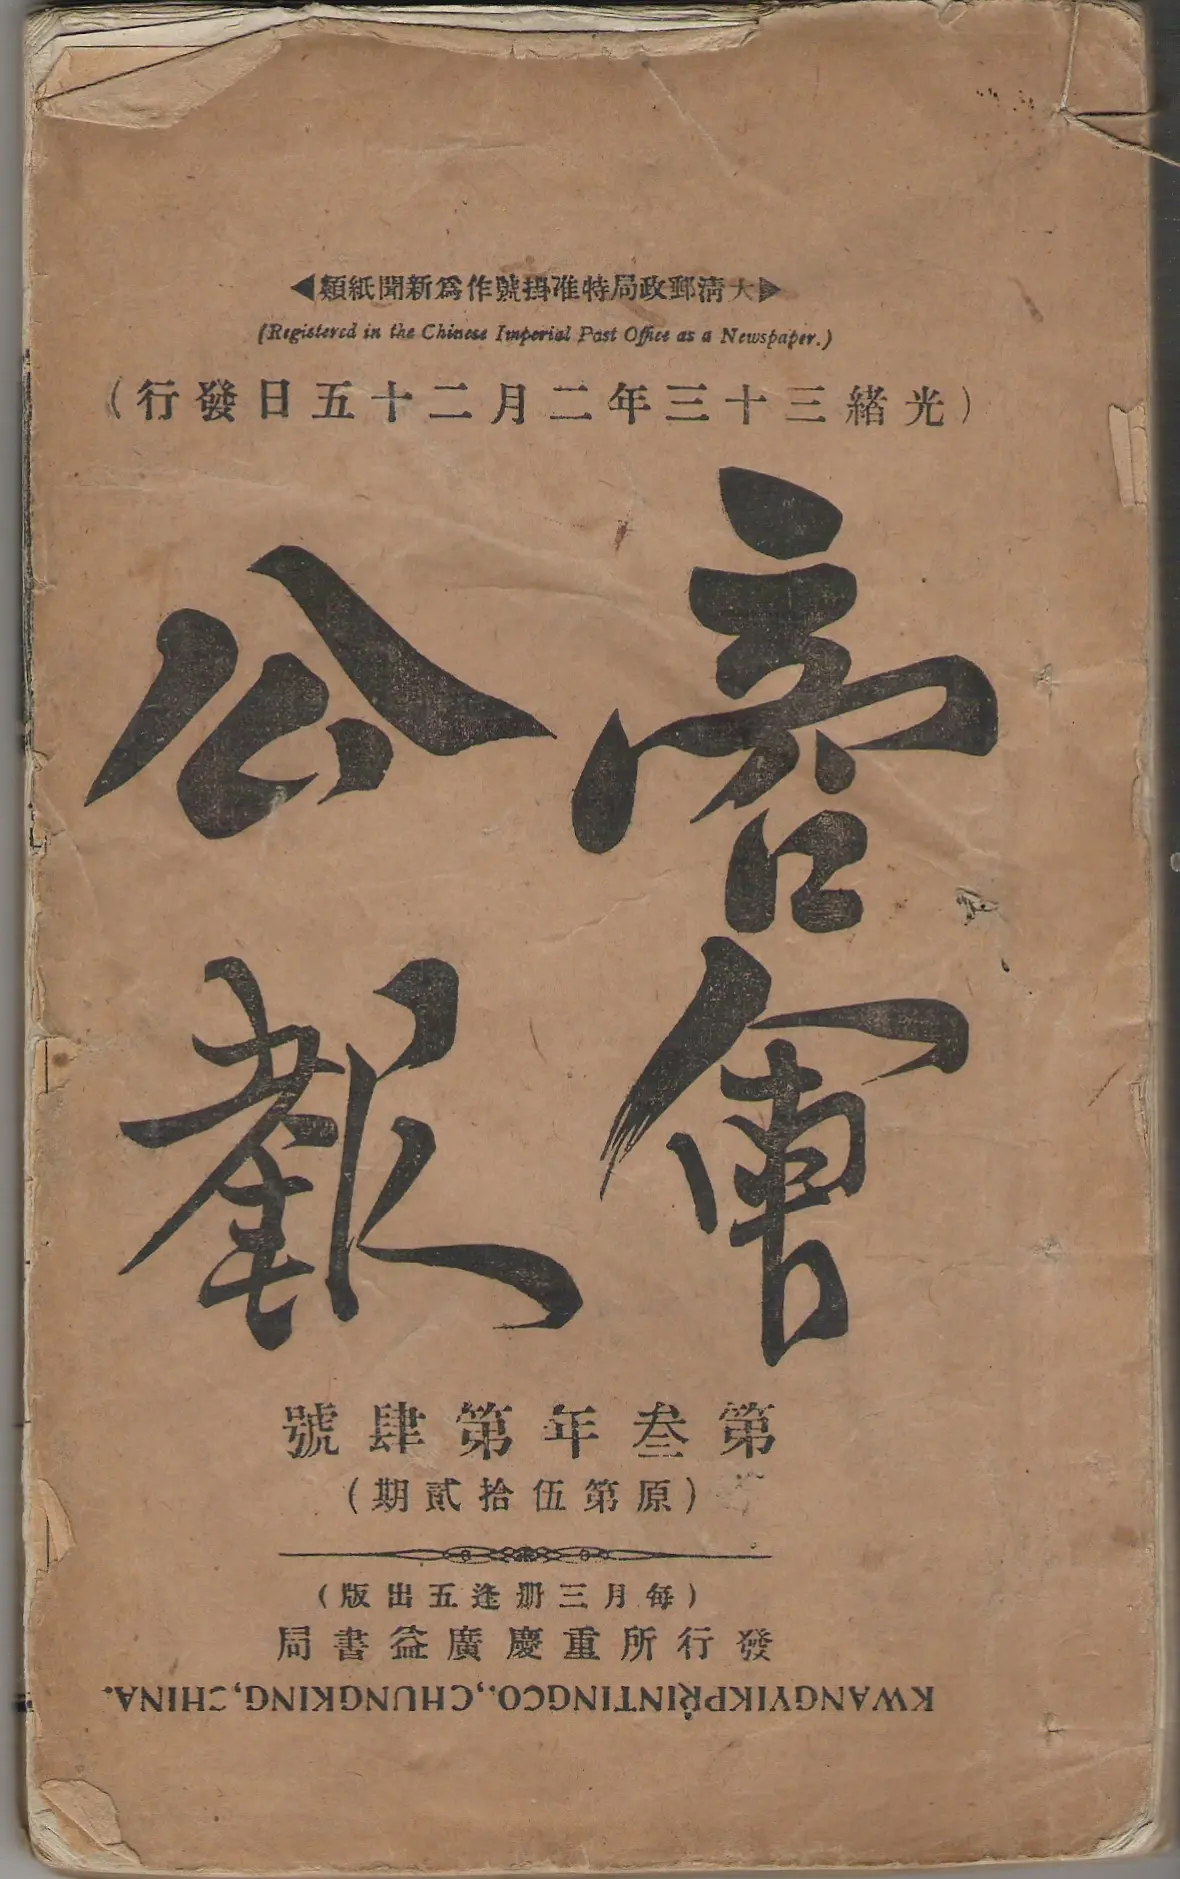 ▶大淸郵政局特准掛號作爲新聞紙類◀
(Registered in the Chinese Imperial Post Office as a Newspaper.)
(光緒三十三年二月二十五日發行)
商會
公報
第叁年第肆號
(原第伍拾貳期)
(每月三册逢五出版)
發行所重慶廣益書局
KWANGYIKPRINTINGCO.,CHUNGKING,CHINA.